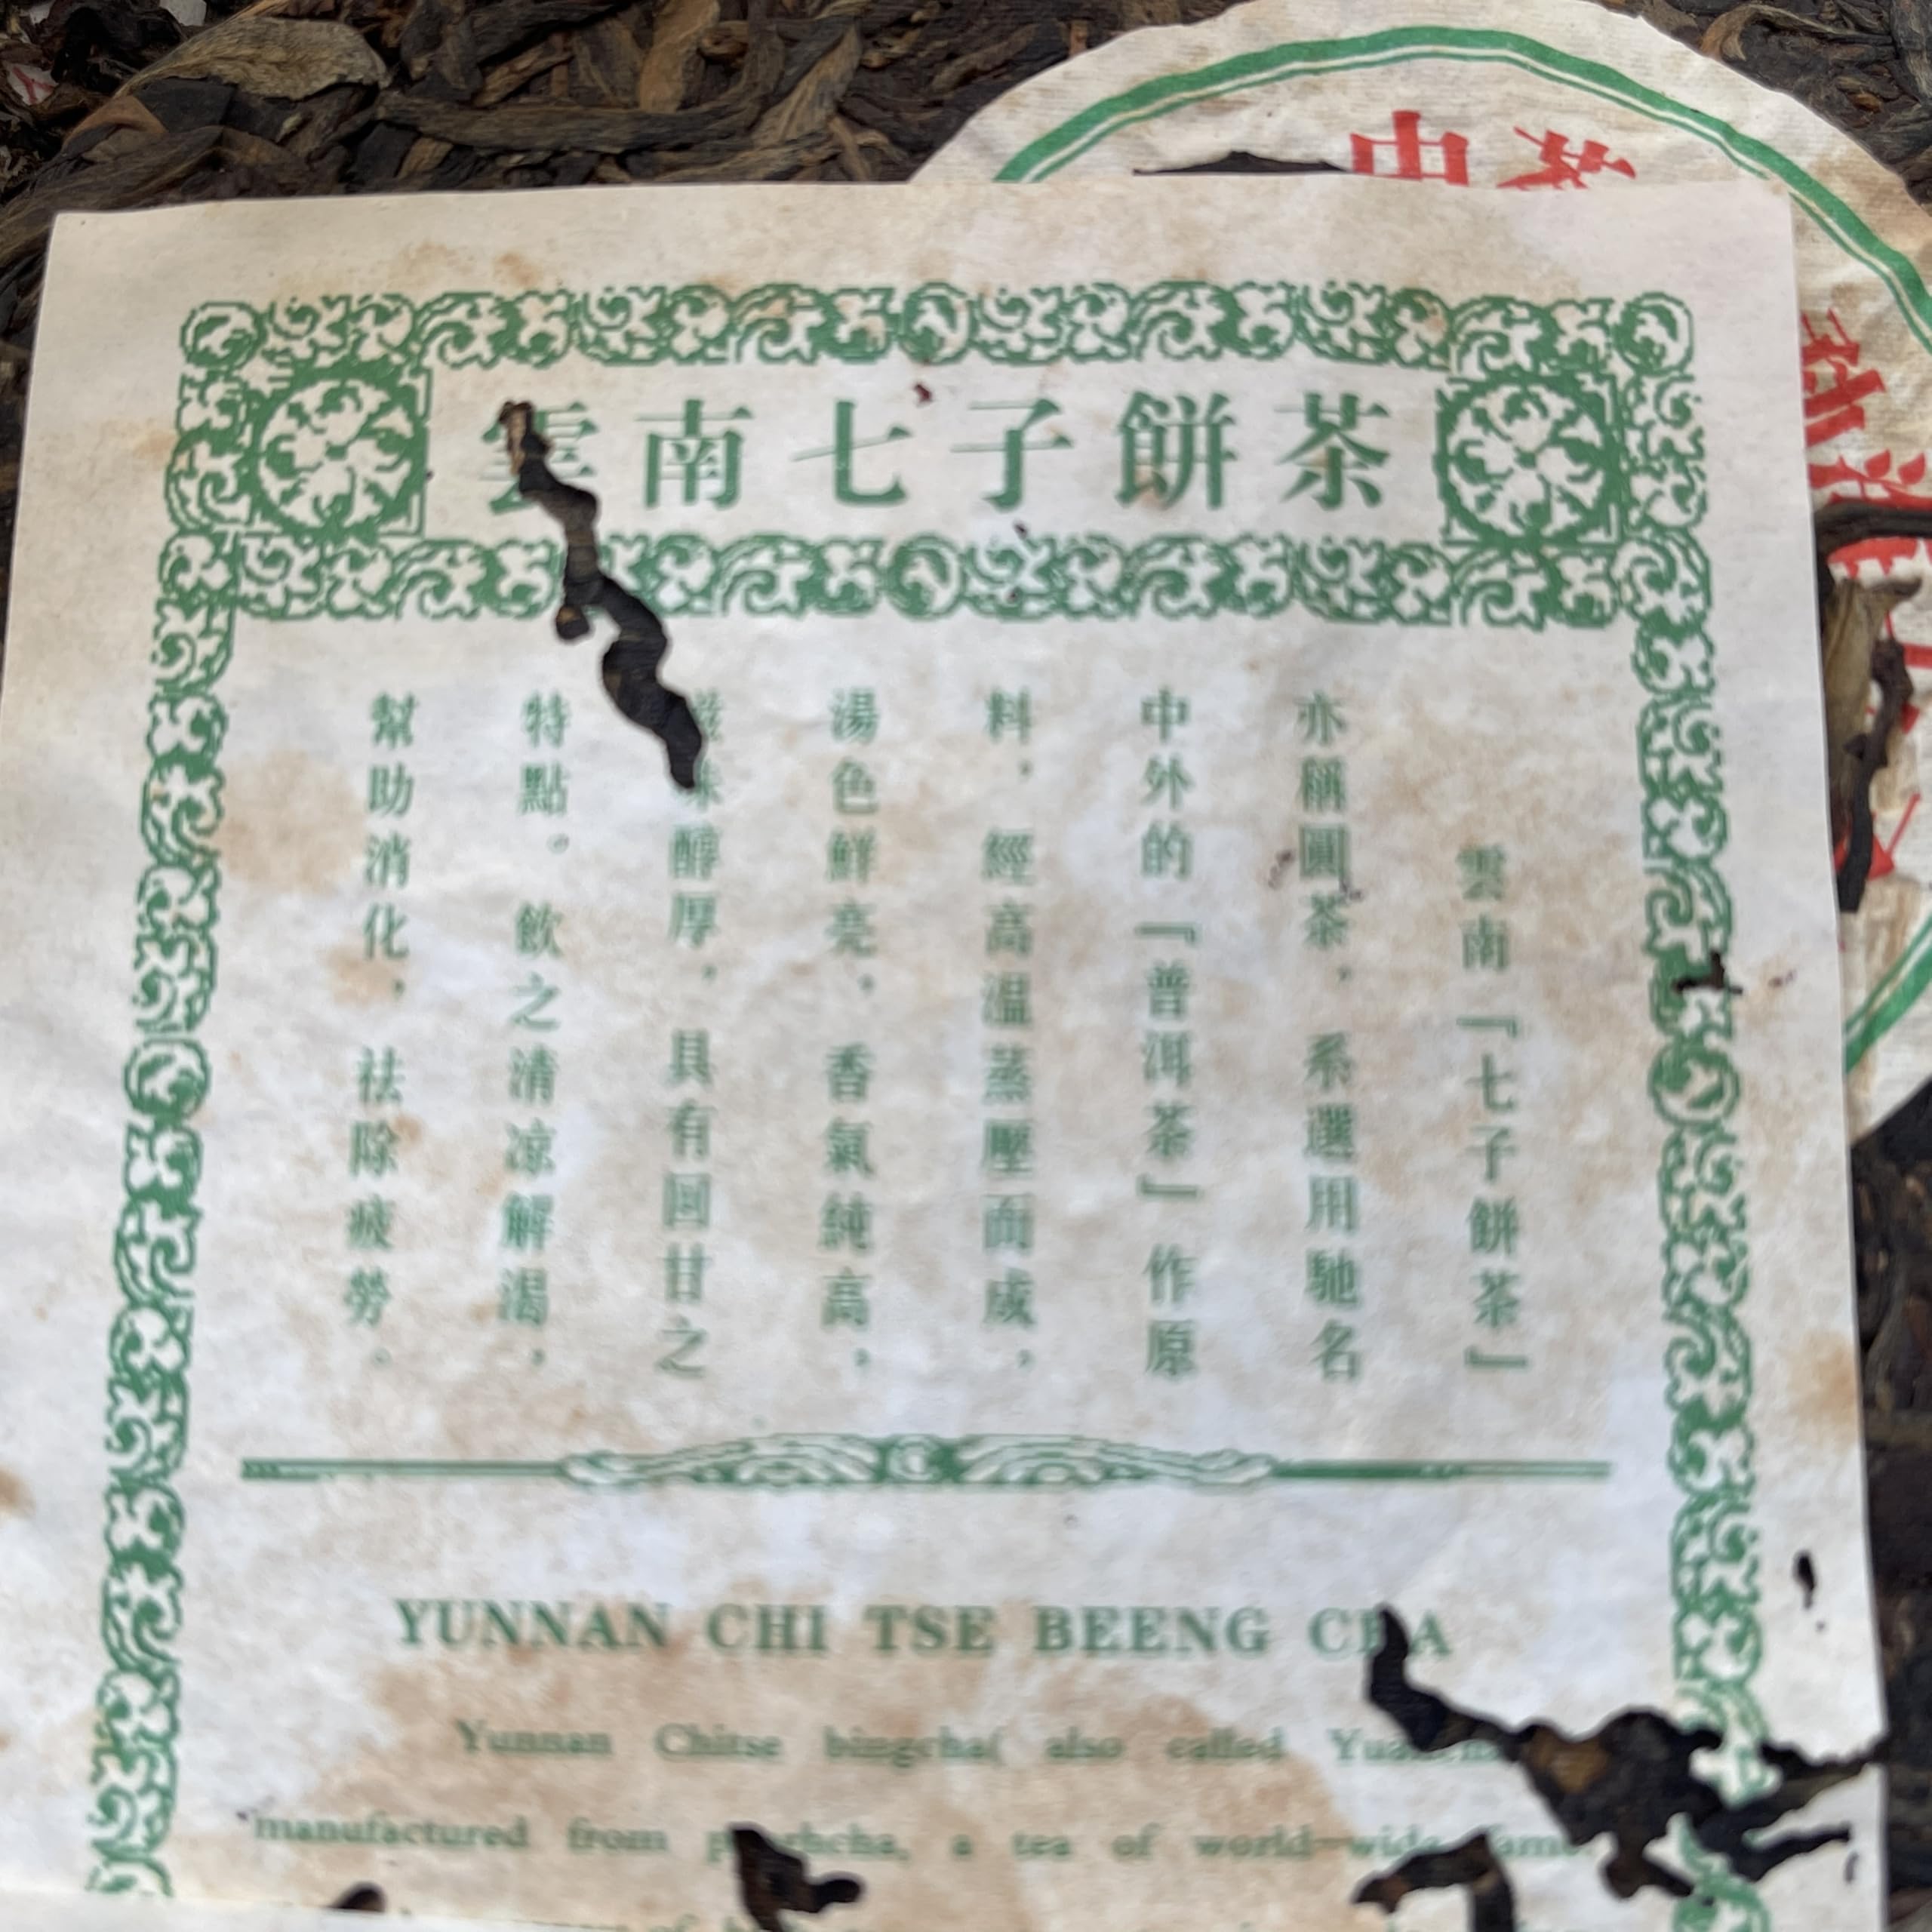 中茶
勐海
雲南七子餅茶
雲南「七子餅茶」
亦稱圓茶，系選用馳名
中外的「普洱茶」作原
料，經高温蒸壓而成，
湯色鮮亮，香氣純高，
滋味醇厚，具有回甘之
特點。飲之清凉解渴，
幫助消化，祛除疲勞。
YUNNAN CHI TSE BEENG CHA
Yunnan Chitse bingcha( also called
manufactured from puerhcha, a tea of world-wide fame.
of